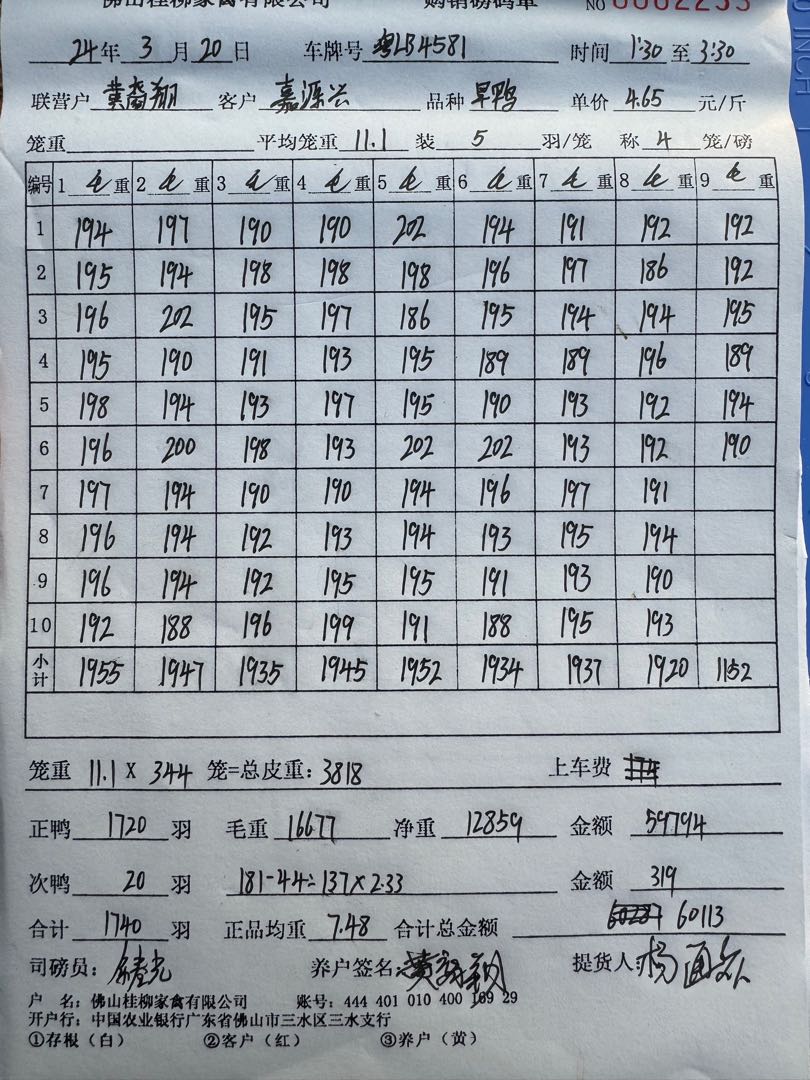 佛山桂柳家禽有限公司 购销磅码单 NO 0002233
24年 3月 20日 车牌号 粤LB4581 时间 1:30 至 3:30
联营户 黄裔翔 客户 嘉源兴 品种 旱鸭 单价 4.65 元/斤
笼重 平均笼重 11.1 装 5 羽/笼 称 4 笼/磅
编号 1 毛重 2 毛重 3 毛重 4 毛重 5 毛重 6 毛重 7 毛重 8 毛重 9 毛重
1 194 197 190 190 202 194 191 192 192
2 195 194 198 198 198 196 197 186 192
3 196 202 195 197 186 195 194 194 195
4 195 190 191 193 195 189 189 196 189
5 198 194 193 197 195 190 193 192 194
6 196 200 198 193 202 202 193 192 190
7 197 194 190 190 194 196 197 191
8 196 194 192 193 194 193 195 194
9 196 194 192 195 195 191 193 190
10 192 188 196 199 191 188 195 193
小计 1955 1947 1935 1945 1952 1934 1937 1920 1152
笼重 11.1 X 344 笼=总皮重: 3818 上车费
正鸭 1720 羽 毛重 16677 净重 12859 金额 59794
次鸭 20 羽 181-44=137×2.33 金额 319
合计 1740 羽 正品均重 7.48 合计总金额 60113
司磅员: 养户签名: 提货人: 杨
户 名: 佛山桂柳家禽有限公司 账号: 444 401 010 400 169 29
开户行: 中国农业银行广东省佛山市三水区三水支行
①存根（白） ②客户（红） ③养户（黄）